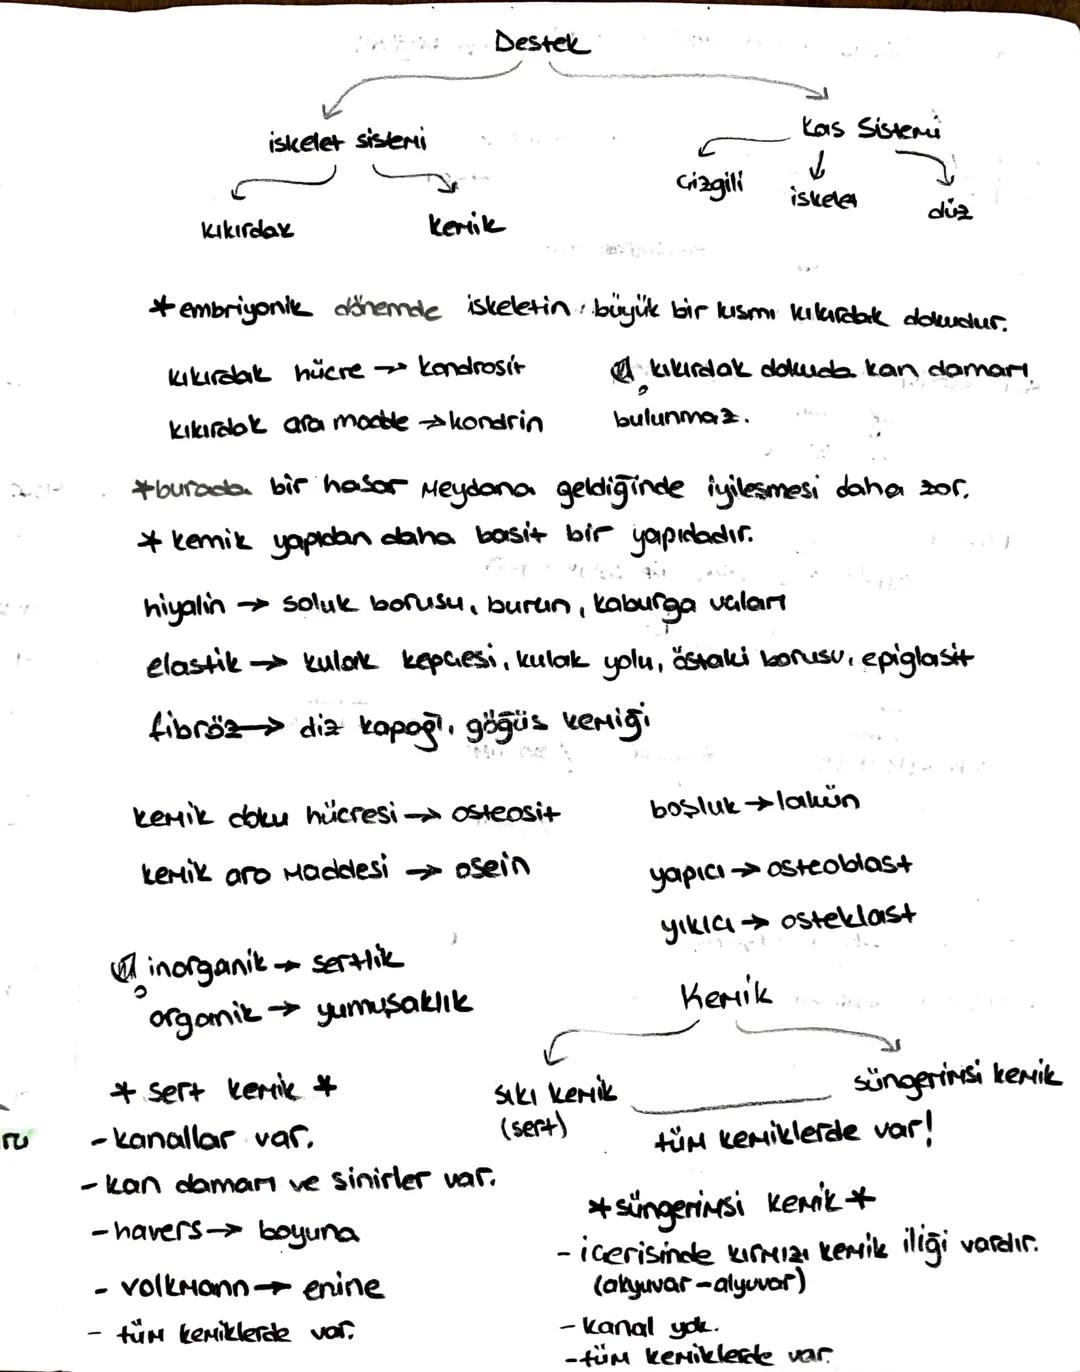 Destek
iskelet sistemi
Kas Sistemi
kıkırdak
kemik
Çizgili
iskelet
düz
* embriyonik dönemde iskeletin büyük bir kısmı kıkırdak dokudur.
kıkırdak hücre → kondrosit
kıkırdak ara madde → kondrin
kıkırdak dokuda kan damarı
bulunmaz.
* burada bir hasar meydana geldiğinde iyileşmesi daha zor.
* kemik yapıdan daha basit bir yapıdadır.
hiyalin → soluk borusu, burun, kaburga uçları
elastik → kulak kepçesi, kulak yolu, östaki borusu, epiglasit
fibröz → diz kapağı, göğüs kemiği
kemik doku hücresi → osteosit
kemik ara maddesi → osein
boşluk → lakün
yapıcı → osteoblast
yıkıcı → osteklast
inorganik → sertlik
organik → yumuşaklık
Kemik
sıkı kemik
(sert)
süngerimsi kemik
tüm kemiklerde var!
* sert kemik *
- kanallar var.
- kan damarı ve sinirler var.
- havers → boyuna
- volkmann → enine
- tüm kemiklerde var.
* süngerimsi kemik *
- içerisinde kırmızı kemik iliği vardır.
(akyuvar - alyuvar)
- kanal yok.
- tüm kemiklerde var.